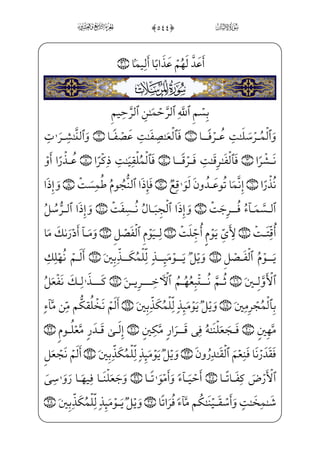 سُورَةُ الإِنسَانِ ﴿٥٤٤﴾ الجُزْءُ التَّاسِعُ وَالعِشْرُونَ
أَعَدَّ لَهُمْ عَذَابًا أَلِيمًۢا ٣١
سُورَةُ الْمُرْسَلَاتِ
بِسْمِ ٱللَّهِ ٱلرَّحْمَـٰنِ ٱلرَّحِيمِ
وَٱلْمُرْسَلَـٰتِ عُرْفًا ١ فَٱلْعَـٰصِفَـٰتِ عَصْفًا ٢ وَٱلنَّـٰشِرَٰتِ
نَشْرًا ٣ فَٱلْفَـٰرِقَـٰتِ فَرْقًا ٤ فَٱلْمُلْقِيَـٰتِ ذِكْرًا ٥ عُذْرًا أَوْ
نُذْرًا ٦ إِنَّمَا تُوعَدُونَ لَوَٰقِعٌ ٧ فَإِذَا ٱلنُّجُومُ طُمِسَتْ ٨ وَإِذَا
ٱلسَّمَآءُ فُرِجَتْ ٩ وَإِذَا ٱلْجِبَالُ نُسِفَتْ ١٠ وَإِذَا ٱلرُّسُلُ
أُقِّتَتْ ١١ لِأَىِّ يَوْمٍ أُجِّلَتْ ١٢ لِيَوْمِ ٱلْفَصْلِ ١٣ وَمَآ أَدْرَىٰكَ مَا
يَوْمُ ٱلْفَصْلِ ١٤ وَيْلٌ يَوْمَئِذٍ لِّلْمُكَذِّبِينَ ١٥ أَلَمْ نُهْلِكِ
ٱلْأَوَّلِينَ ١٦ ثُمَّ نُتْبِعُهُمُ ٱلْـَٔاخِرِينَ ١٧ كَذَٰلِكَ نَفْعَلُ
بِٱلْمُجْرِمِينَ ١٨ وَيْلٌ يَوْمَئِذٍ لِّلْمُكَذِّبِينَ ١٩ أَلَمْ نَخْلُقكُّم مِّن مَّآءٍ
مَّهِينٍ ٢٠ فَجَعَلْنَـٰهُ فِى قَرَارٍ مَّكِينٍ ٢١ إِلَىٰ قَدَرٍ مَّعْلُومٍ ٢٢
فَقَدَرْنَا فَنِعْمَ ٱلْقَـٰدِرُونَ ٢٣ وَيْلٌ يَوْمَئِذٍ لِّلْمُكَذِّبِينَ ٢٤ أَلَمْ نَجْعَلِ
ٱلْأَرْضَ كِفَاتًا ٢٥ أَحْيَآءً وَأَمْوَٰتًا ٢٦ وَجَعَلْنَا فِيهَا رَوَٰسِىَ
شَـٰمِخَـٰتٍ وَأَسْقَيْنَـٰكُم مَّآءً فُرَاتًا ٢٧ وَيْلٌ يَوْمَئِذٍ لِّلْمُكَذِّبِينَ ٢٨